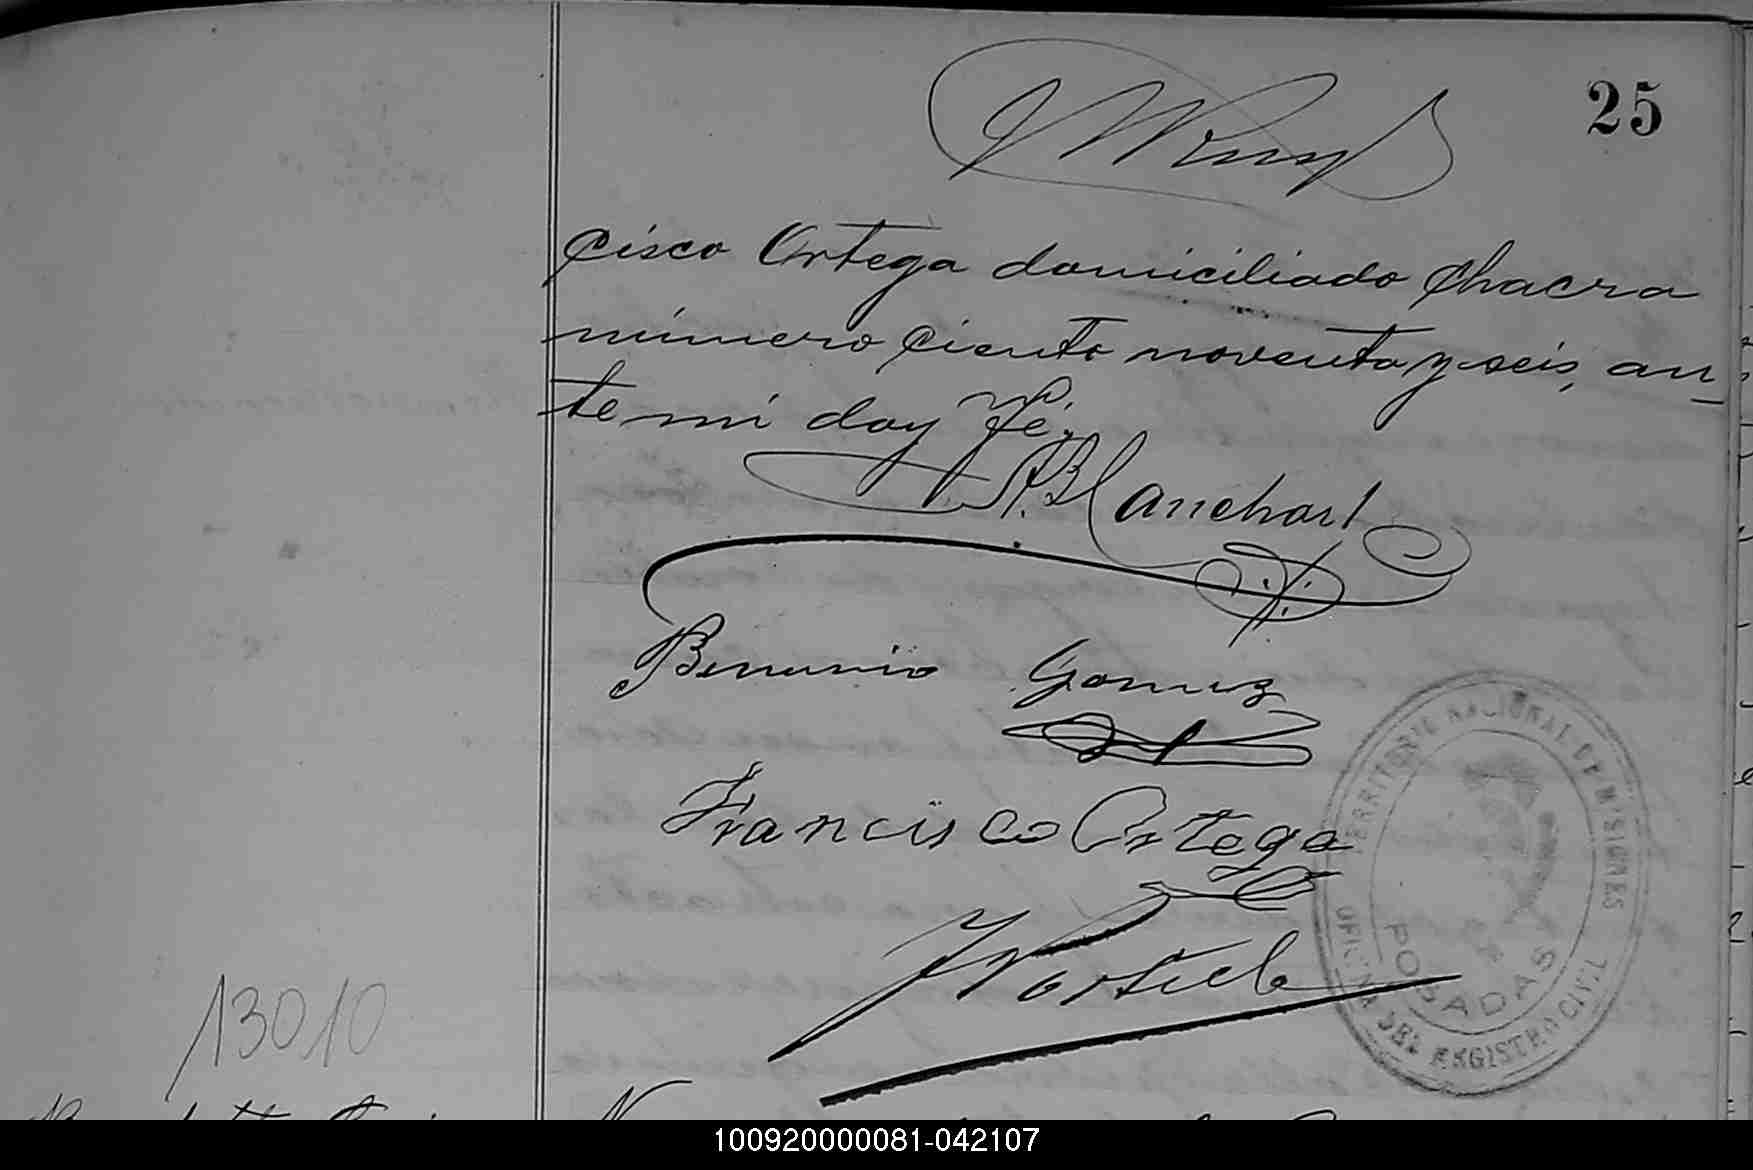 25
cisco Ortega domiciliado Chacra
número ciento noventa y seis, an_
te mi doy fé.
A. Blanchart
Gomez
Francisco Ortega
TERRITORIO NACIONAL DE MISIONES
POSADAS
OFICINA DEL REGISTRO CIVIL
13010
100920000081-042107